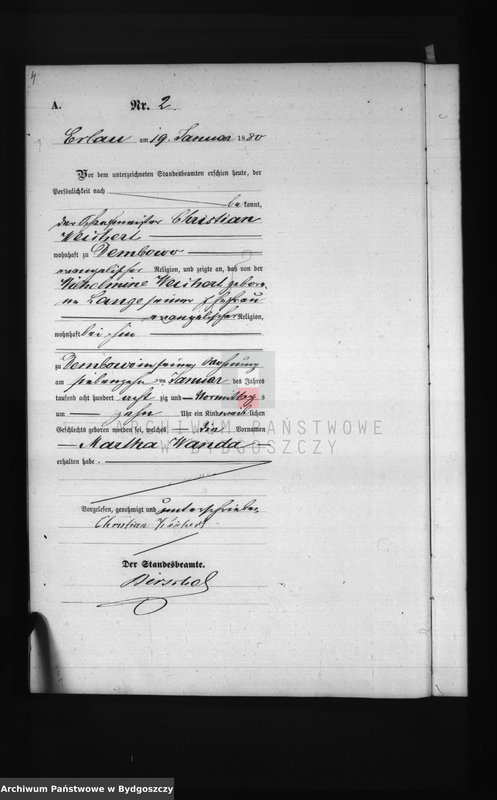 4
A. Nr. 2
Erlau am 19. Januar 1880
Vor dem unterzeichneten Standesbeamten erschien heute, der
Persönlichkeit nach
be kannt,
der Christian
Weichert
wohnhaft zu Dembowo
evangelischer Religion, und zeigte an, daß von der
Wilhelmine Weichert gebore
ne Lange seiner Ehefrau
evangelischer Religion,
wohnhaft bei ihm
zu Dembowo in seiner Wohnung
am siebenzehnten Januar des Jahres
tausend acht hundert acht zig und Vormittag s
um zehn Uhr ein Kind weib lichen
Geschlechts geboren worden sei, welches die Vornamen
Martha Wanda
erhalten habe.
Vorgelesen, genehmigt und unterschrieben
Christian Weichert
Der Standesbeamte.
ARCHIWUM PAŃSTWOWE
W BYDGOSZCZY
Archiwum Państwowe w Bydgoszczy